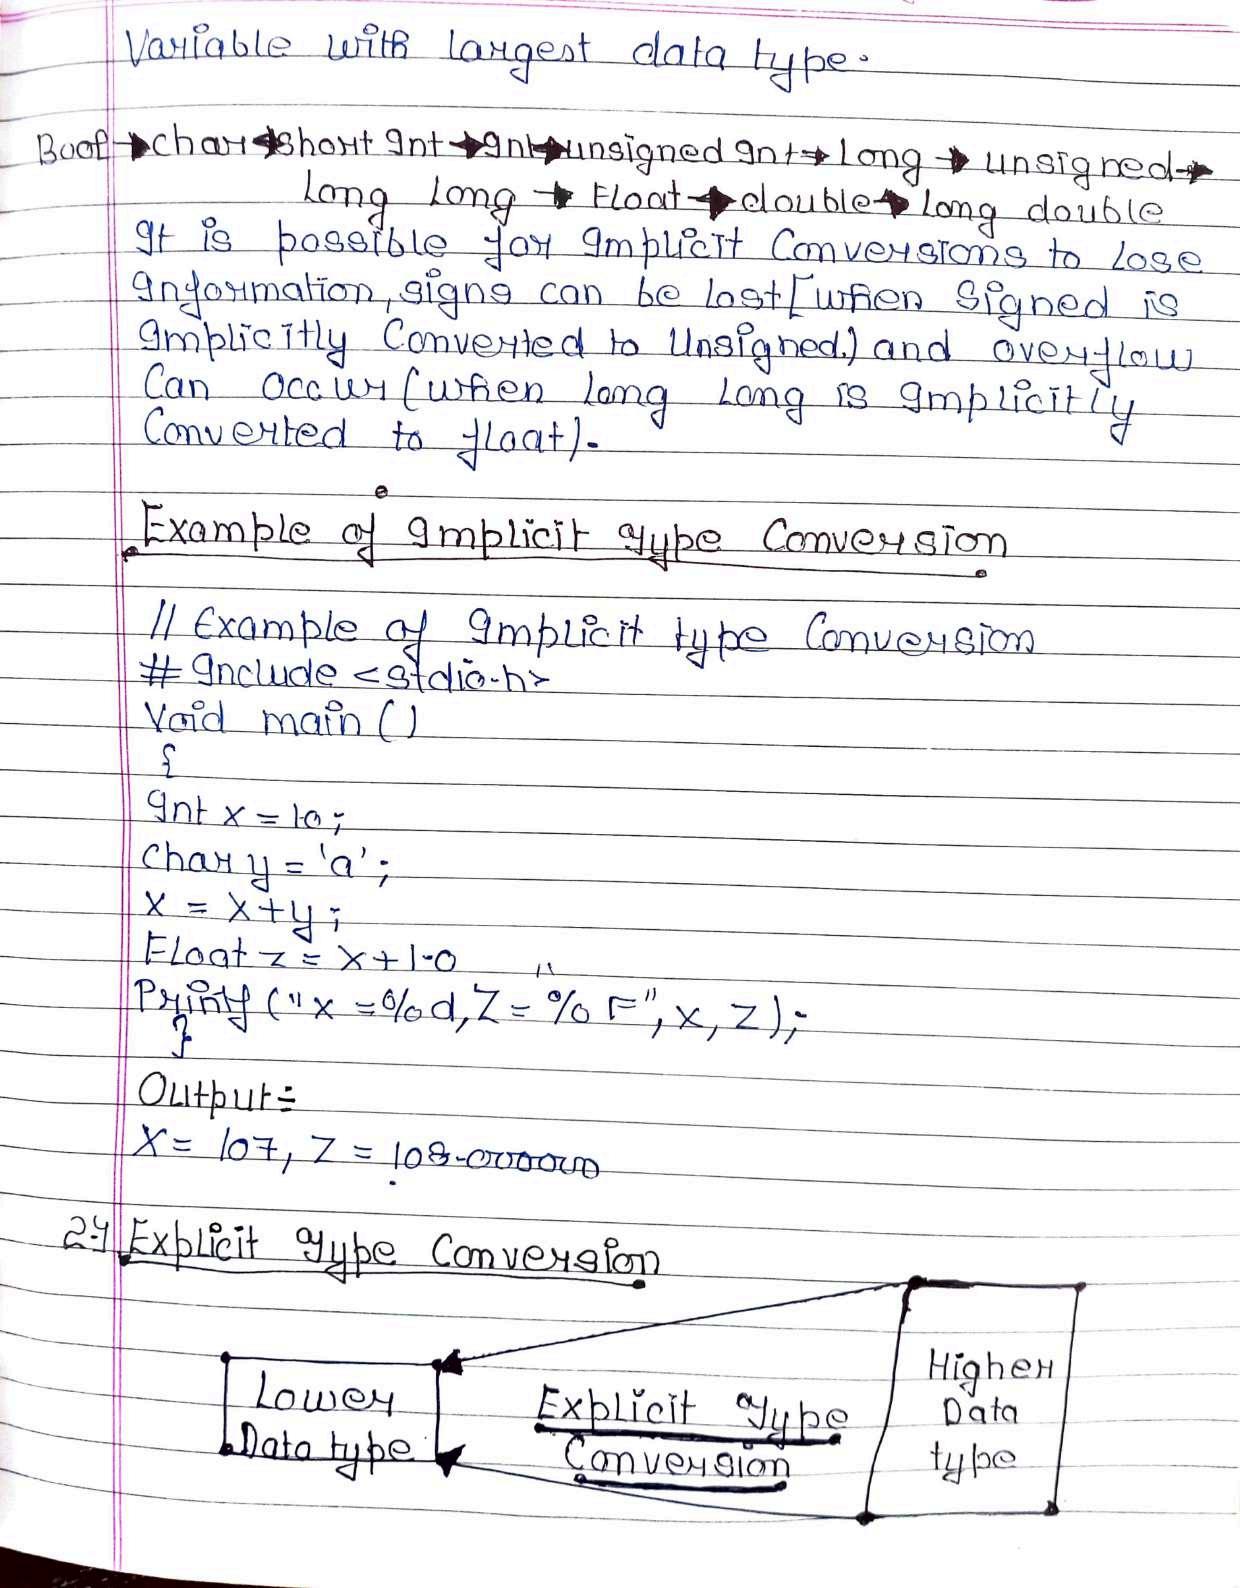 Variable with largest data type.
Bool → char → short Int → Int → unsigned Int → Long → unsigned →
Long Long → Float → double → Long double
It is possible for Implicit Conversions to Lose
Information, signs can be lost [when Signed is
Implicitly Converted to Unsigned.) and overflow
Can occur (when Long Long is Implicitly
Converted to float).
Example of Implicit Type Conversion
// Example of Implicit type Conversion
# Include <stdio.h>
Void main ()
{
Int x = 10;
Char y = 'a';
X = X+y;
Float z = x+1.0
Printf ("x =%d, Z = %F", x, z);
}
Output:=
X= 107, Z = 108.000000
2.) Explicit Type Conversion
Lower
Data type
Explicit Type
Conversion
Higher
Data
type